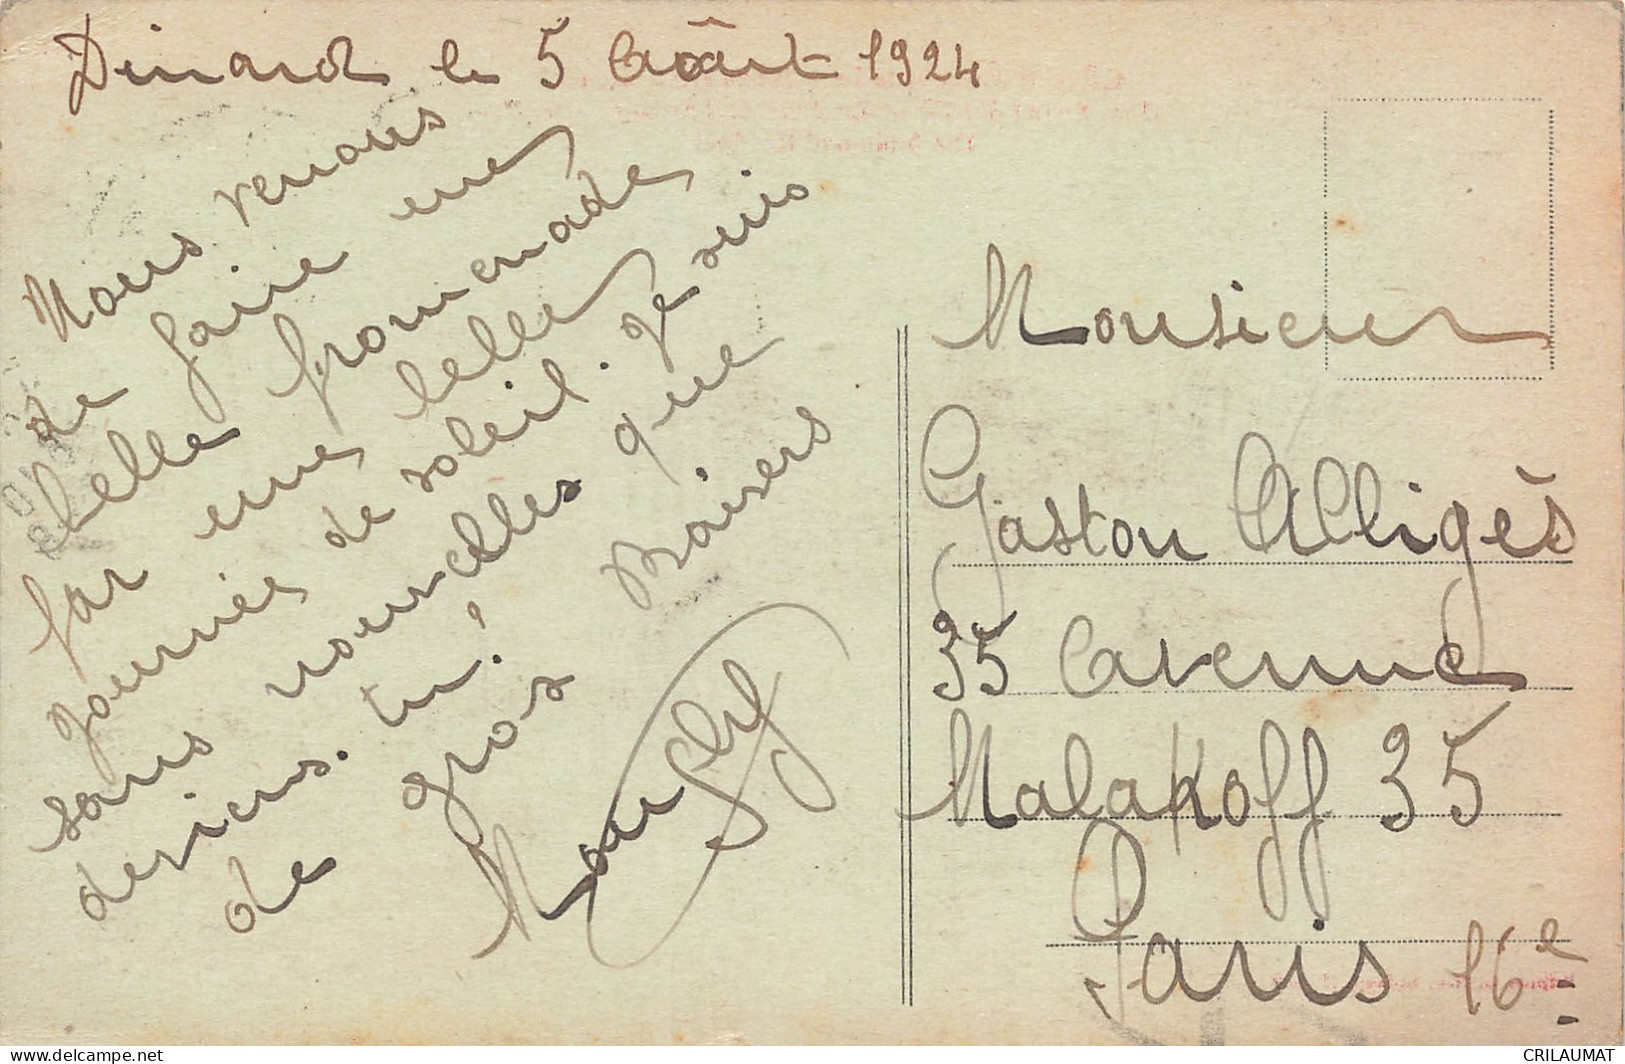 Dinard le 5 Août 1924
Nous venons
de faire une
belle promenade
par une belle
journée de soleil. Je suis
sans nouvelles que
deviens. tu?
de gros Baisers
Monsieur
Gaston Alligès
35 Avenue
Malakoff 35
Paris 16e
www.delcampe.net
CRILAUMAT